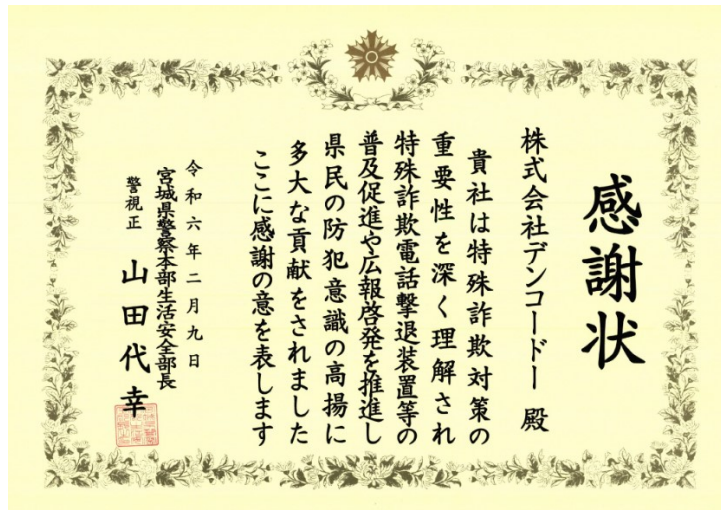 感謝状
株式会社デンコードー 殿
貴社は特殊詐欺対策の
重要性を深く理解され
特殊詐欺電話撃退装置等の
普及促進や広報啓発を推進し
県民の防犯意識の高揚に
多大な貢献をされました
ここに感謝の意を表します
令和六年二月九日
宮城県警察本部生活安全部長
警視正 山田代幸